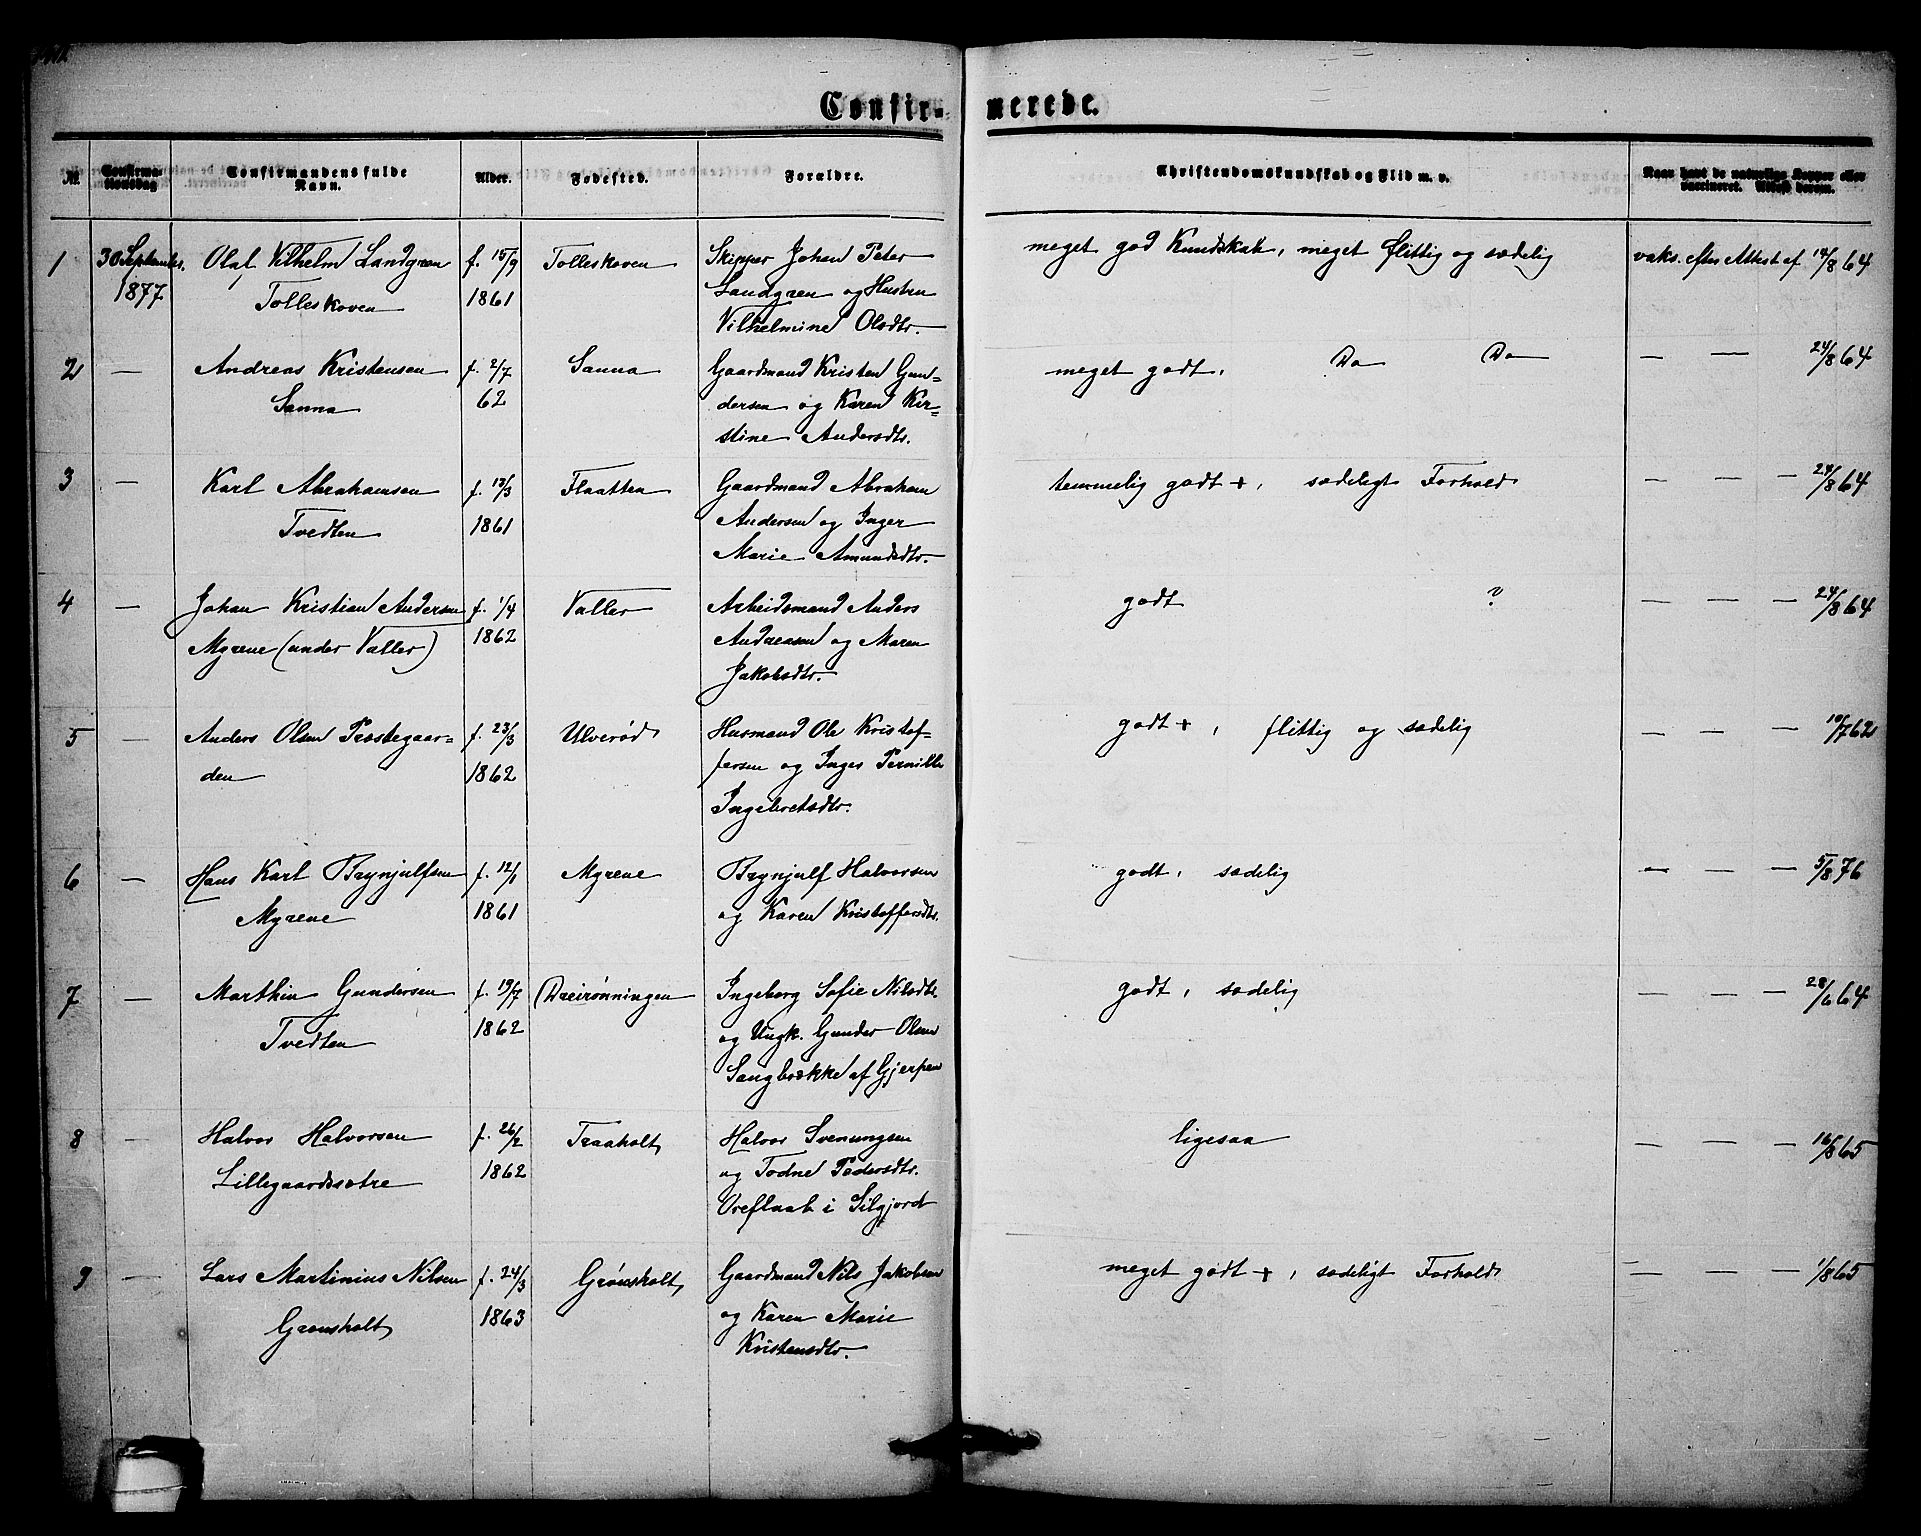 Confirmerede.
№ Confirmationsdag Confirmandens fulde Navn. Alder. Fødested. Forældre. Christendomskundskab og Flid m. v. Naar havt de naturlige Kopper eller vaccineret. Attest derom.
1 30 September Olaf Vilhelm Landgren f. 15/9 Tolleskoven Skipper Johan Peter meget god Kundskab, meget flittig og sædelig vaks. efter Attest af 14/8 64
1877 Tolleskoven 1861 Landgren og Hustru
Vilhelmine Olsdtr.
2 — Andreas Kristensen f. 2/7 Sanna Gaardmand Kristen Gun= meget godt, Do Do — — 24/8 64
Sanna 62 dersen og Karen Kir=
stine Andersdtr.
3 — Karl Abrahamsen f. 13/3 Flaatten Gaardmand Abraham temmelig godt +, sædeligt Forhold — — — 24/8 64
Tvedten 1861 Andersen og Inger
Marie Amundsdtr.
4 — Johan Kristian Andersen f. 1/4 Valler Arbeidsmand Anders godt ? — — — 24/8 64
Myrene (under Valler) 1862 Andreasen og Maren
Jakobsdtr.
5 — Anders Olsen Præstegaar= f. 23/3 Ulverød Husmand Ole Kristof= godt +, flittig og sædelig — — — 10/7 62
den 1862 fersen og Inger Pernille
Ingebretsdtr.
6 — Hans Karl Brynjulfsen f. 12/1 Myrene Brynjulf Halvorsen godt, sædelig — — — 5/8 76
Myrene 1861 og Karen Kristoffersdtr.
7 — Marthin Gundersen f. 19/7 (Dreirønningen Ingeborg Sofie Nilsdtr. godt, sædelig — — — 28/6 64
Tvedten 1862 og Ungk. Gunder Olsen
Langbrække af Gjerpen
8 — Halvor Halvorsen f. 26/2 Traaholt Halvor Svenungsen ligesaa — — — 16/8 65
Lillegaardssætre 1862 og Todne Pedersdtr.
Oreflaat i Silgjord
9 — Lars Martinius Nilsen f. 24/3 Grønsholt Gaardmand Nils Jakobsen meget godt +, sædeligt Forhold — — — 1/8 65
Grønsholt 1863 og Karen Marie
Kristensdtr.